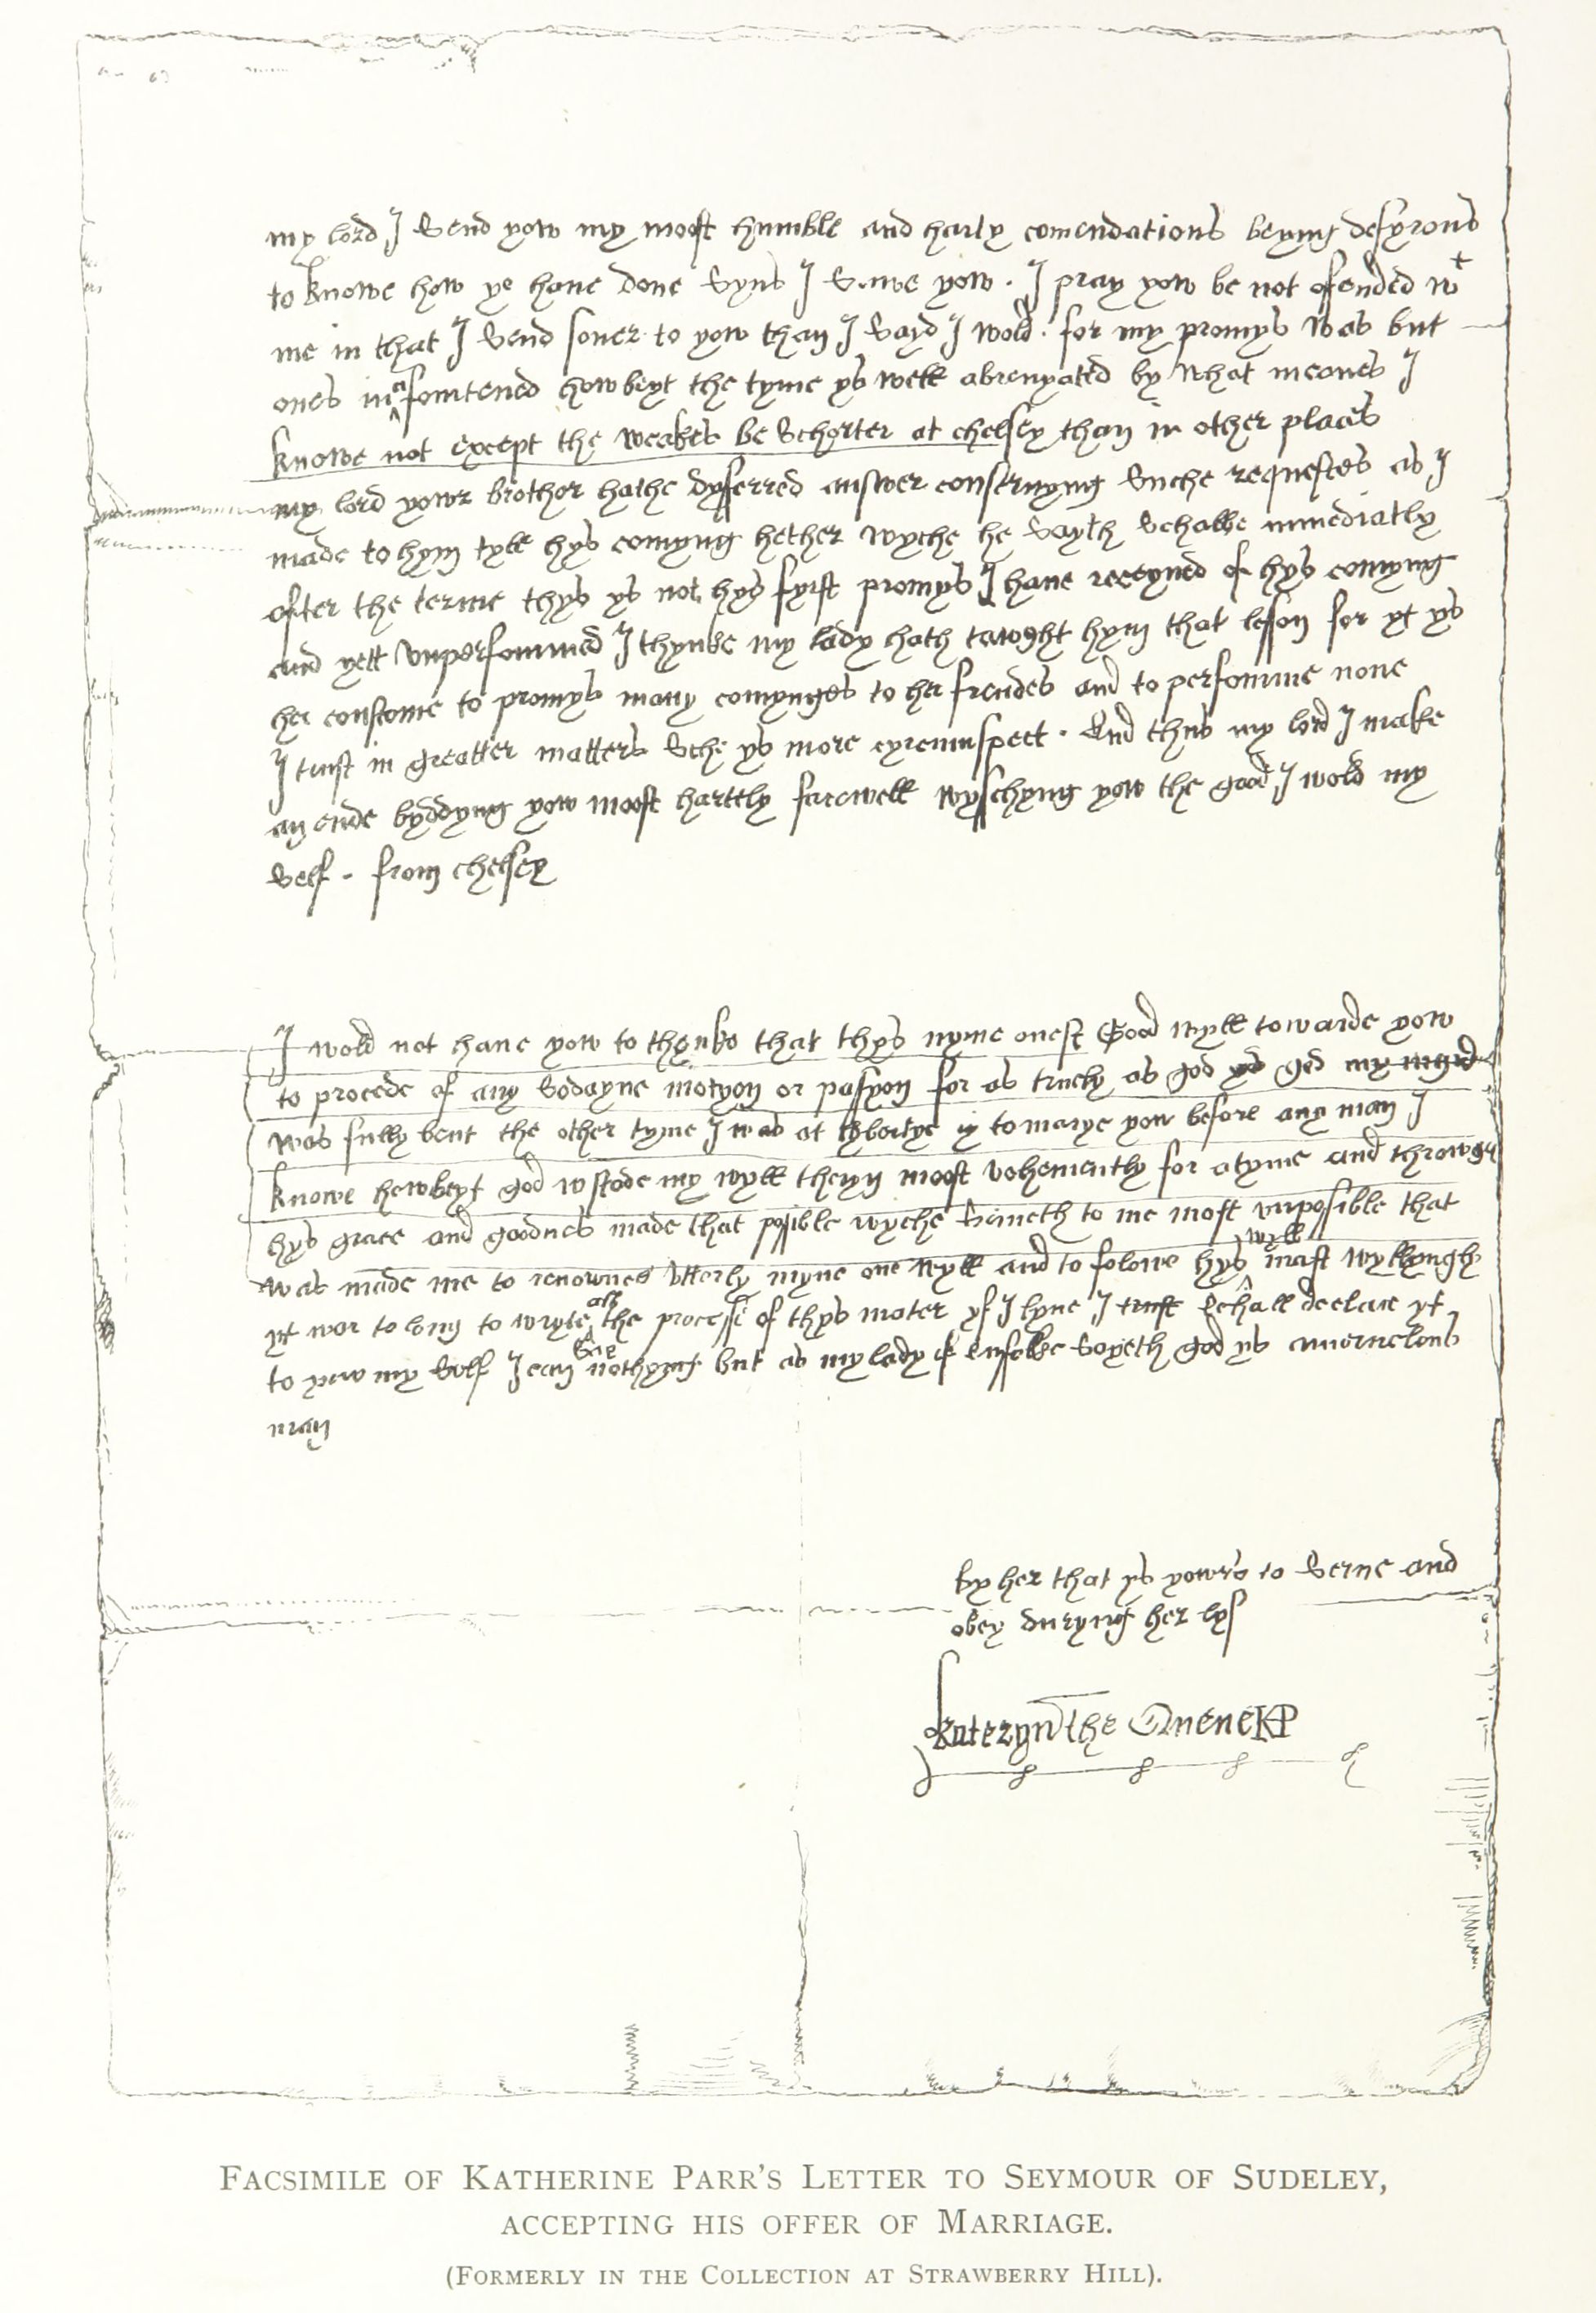 my lord J send yow my moost humble and harty comendations beyng desyrous
to knowe how ye haue done syns J sawe yow . J pray yow be not ofended wt
me in that J send soner to yow than J sayd J wold . for my promys was but
ones in a fourtened howbeyt the tyme ys well abreuyated by what meanes J
knowe not except the weakes be schorter at chelsey than in other places
my lord yowr brother hathe dyferred answer conserNyng suche requestes as J
made to hym tyll hys comyng hether wyche he sayth schalbe immediatly
after the terme thys ys not hys fyrst promys J haue receyued of hys comyng
and yett vnperfourmed J thynke my lady hath tawght hym that leson for yt ys
her coustome to promys many comynges to her frendes and to perfourme none
J trust in greatter matters sche ys more cyrcumspect . And thus my lord J make
an ende byddyng yow moost hartely farewell wyschyng yow the good J wold my
self . from chelsey
J wold not haue yow to thynke that thys myne onest Good wyll towarde yow
to procede of any sodayne motyon or pasyon for as truely as god ys god my mynd
was fully bent the other tyme J was at lybertye to marye yow before any man J
knowe howbeyt god wstode my wyll theryn moost vehemently for a tyme and throwgh
hys grace and goodnes made that possible wyche semeth to me most vnpossible that
was made me to renownes vtterly myne one wyll and to folowe hys wyll most wyllyngly
yt wer to long to wryte all the processe of thys mater yf J lyue J trust schall declare yt
to yow my self J can say nothyng but as my lady of suffolke sayeth god ys a meruelous
man
by her that ys yowrs to serue and
obey duryng her lyf
Kateryn the Quene KP
FACSIMILE OF KATHERINE PARR'S LETTER TO SEYMOUR OF SUDELEY,
ACCEPTING HIS OFFER OF MARRIAGE.
(FORMERLY IN THE COLLECTION AT STRAWBERRY HILL).